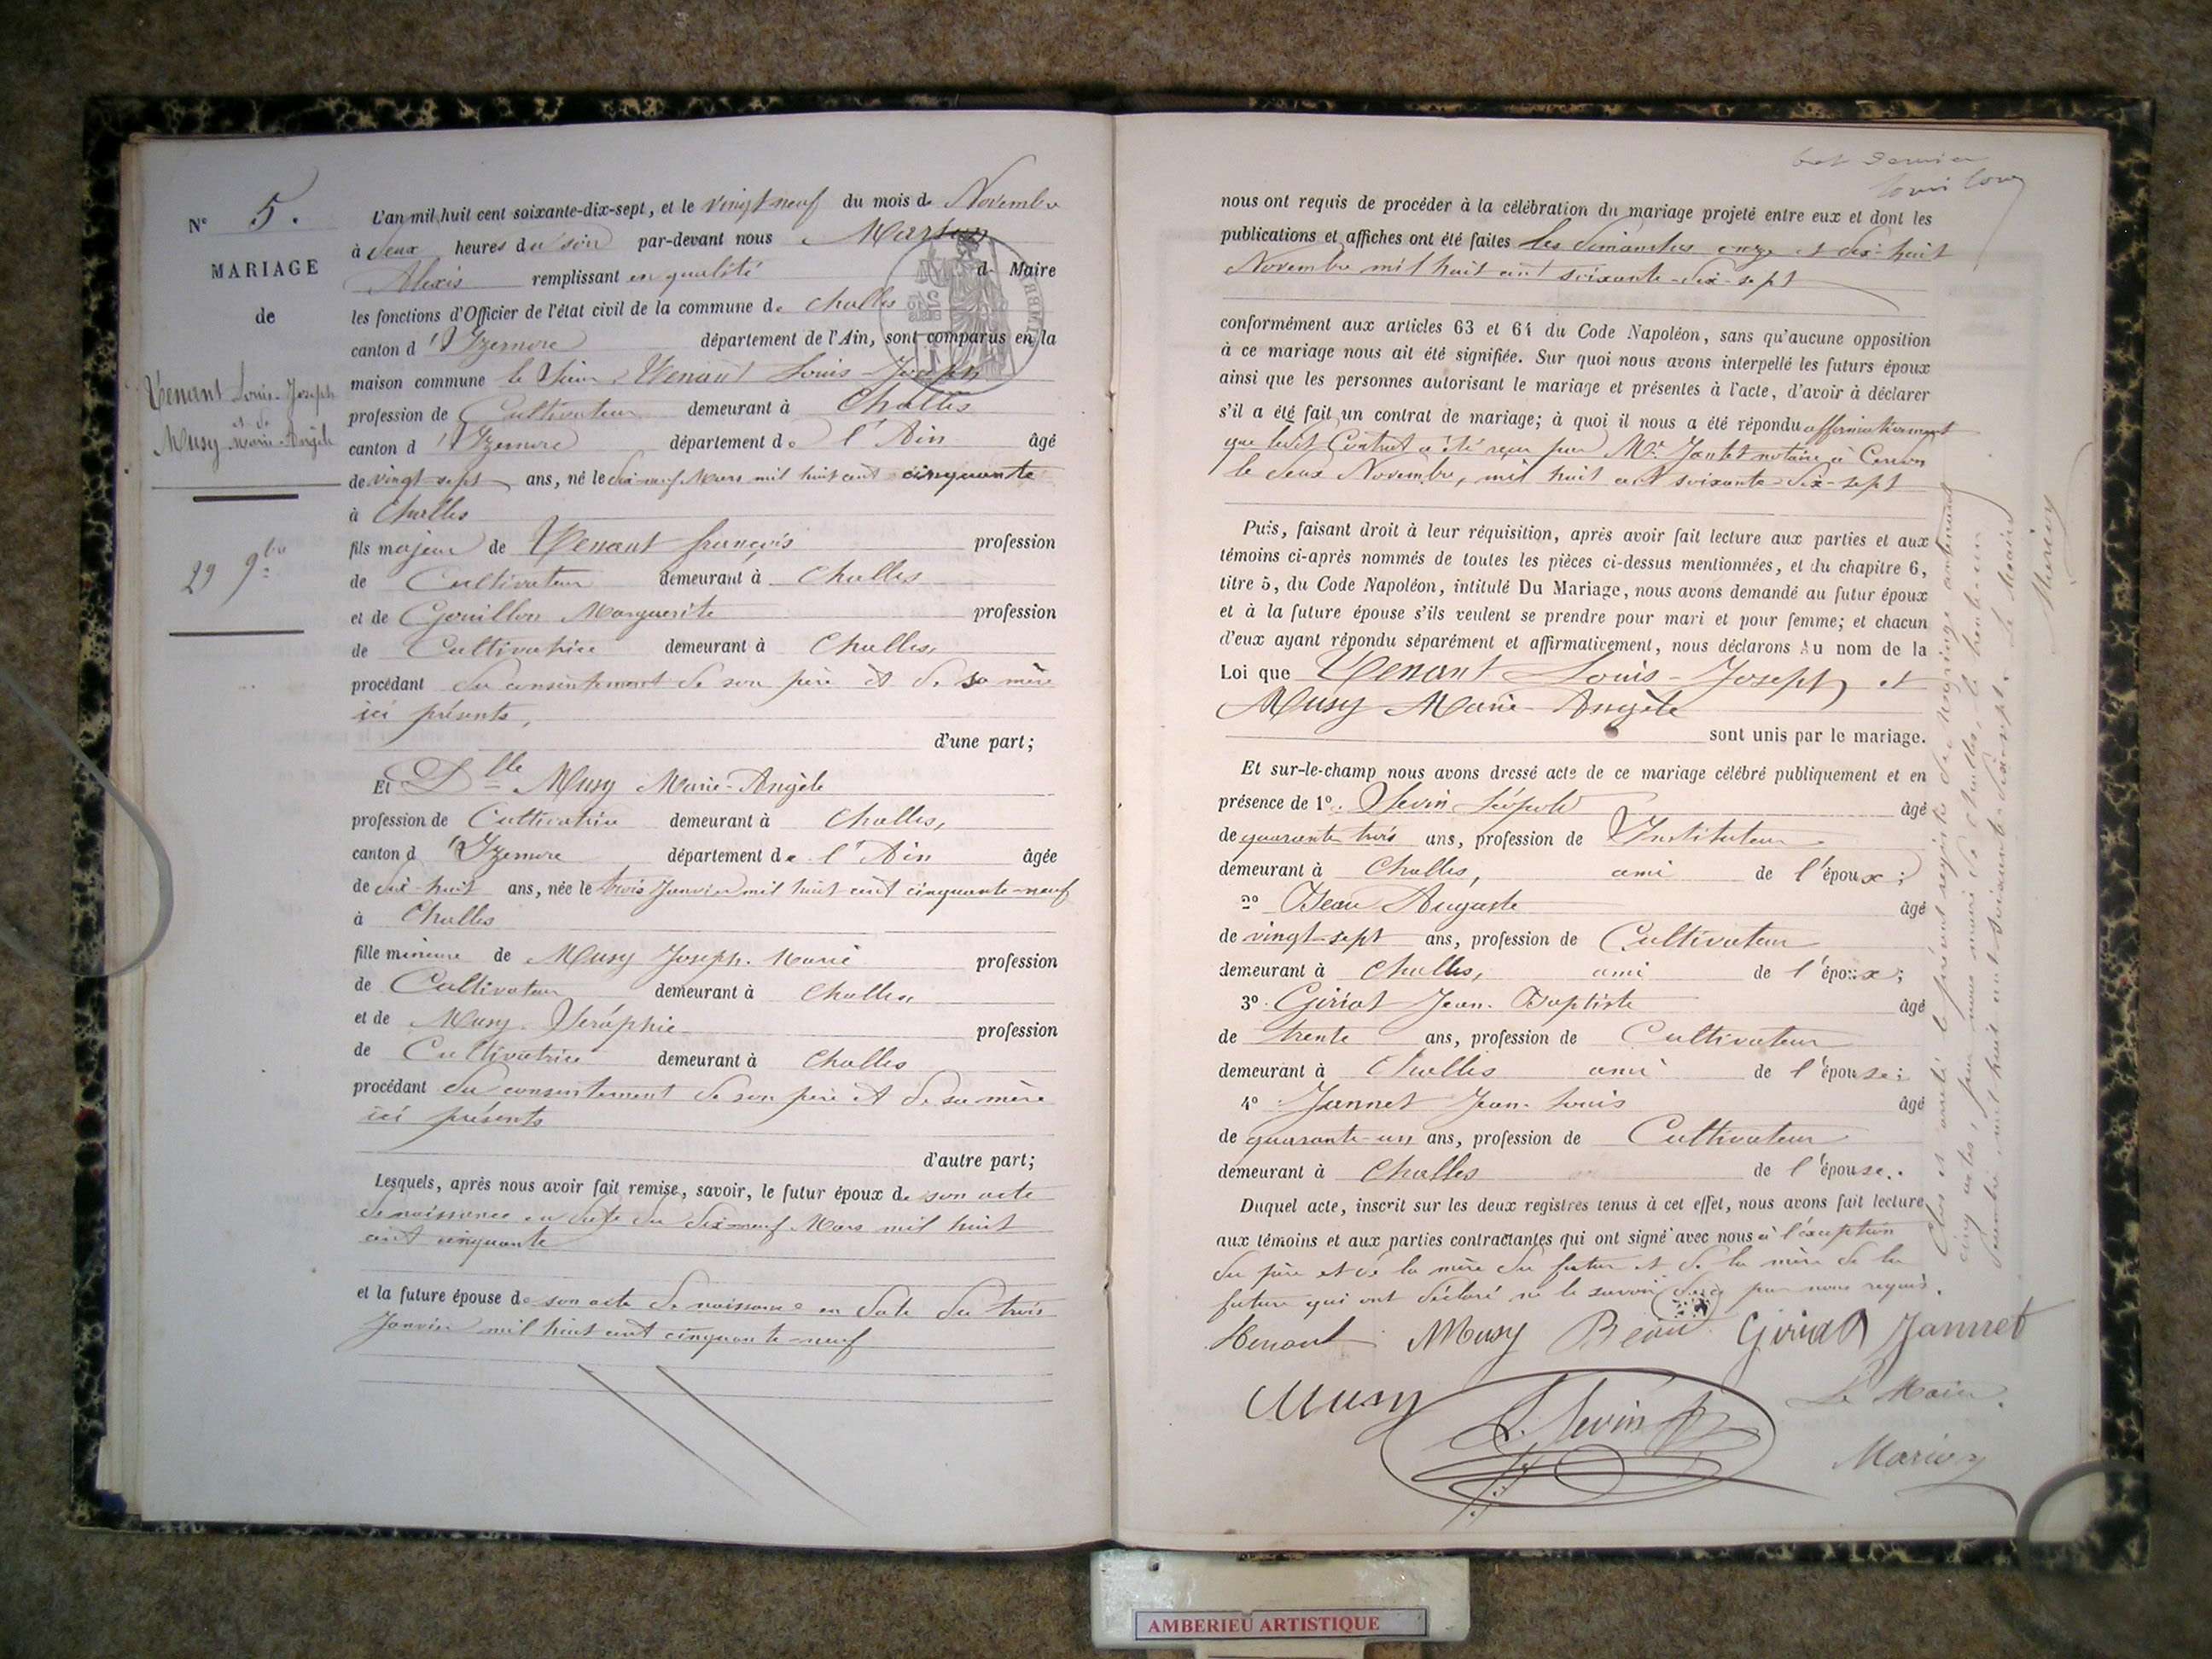 N° 5.
MARIAGE
de
Venant Louis-Joseph
et de
Musy Marie-Angèle
29 9bre
L'an mil huit cent soixante-dix-sept, et le vingt-neuf du mois de Novembre
à deux heures du soir par-devant nous
Alexis remplissant en qualité de Maire
les fonctions d'Officier de l'état civil de la commune de Challes
canton d'Izernore département de l'Ain, sont comparus en la
maison commune le Sieur Venant Louis-Joseph
profession de Cultivateur demeurant à Challes
canton d'Izernore département de l'Ain âgé
de vingt-sept ans, né le dix-neuf Mars mil huit cent cinquante
à Challes
fils majeur de Venant françois profession
de Cultivateur demeurant à Challes
et de Gouillon Marguerite profession
de Cultivatrice demeurant à Challes,
procédant du consentement de son père et de sa mère
ici présents,
d'une part;
Et Dlle Musy Marie-Angèle
profession de Cultivatrice demeurant à Challes,
canton d'Izernore département de l'Ain âgée
de dix-huit ans, née le trois Janvier mil huit cent cinquante-neuf
à Challes
fille mineure de Musy Joseph-Marie profession
de Cultivateur demeurant à Challes
et de Musy Séraphie profession
de Cultivatrice demeurant à Challes
procédant du consentement de son père et de sa mère
ici présents
d'autre part;
Lesquels, après nous avoir fait remise, savoir, le futur époux de son acte
de naissance en date du dix-neuf Mars mil huit
cent cinquante
et la future épouse de son acte de naissance en date du trois
Janvier mil huit cent cinquante-neuf
nous ont requis de procéder à la célébration du mariage projeté entre eux et dont les
publications et affiches ont été faites les dimanches onze et dix-huit
Novembre mil huit cent soixante-dix-sept
conformément aux articles 63 et 64 du Code Napoléon, sans qu'aucune opposition
à ce mariage nous ait été signifiée. Sur quoi nous avons interpellé les futurs époux
ainsi que les personnes autorisant le mariage et présentes à l'acte, d'avoir à déclarer
s'il a été fait un contrat de mariage; à quoi il nous a été répondu affirmativement
que ledit Contrat a été reçu par Me Jantet notaire à Cerdon
le deux Novembre, mil huit cent soixante-dix-sept
Puis, faisant droit à leur réquisition, après avoir fait lecture aux parties et aux
témoins ci-après nommés de toutes les pièces ci-dessus mentionnées, et du chapitre 6,
titre 5, du Code Napoléon, intitulé Du Mariage, nous avons demandé au futur époux
et à la future épouse s'ils veulent se prendre pour mari et pour femme; et chacun
d'eux ayant répondu séparément et affirmativement, nous déclarons Au nom de la
Loi que Venant Louis-Joseph et
Musy Marie-Angèle
sont unis par le mariage.
Et sur-le-champ nous avons dressé acte de ce mariage célébré publiquement et en
présence de 1°. Sevin Léopold âgé
de quarante trois ans, profession de Instituteur
demeurant à Challes, ami de l'époux;
2° Beau Auguste âgé
de vingt-sept ans, profession de Cultivateur
demeurant à Challes, ami de l'époux;
3°. Giriat Jean-Baptiste âgé
de trente ans, profession de Cultivateur
demeurant à Challes ami de l'épouse;
4° Jannet Jean-Louis âgé
de quarante-un ans, profession de Cultivateur
demeurant à Challes de l'épouse.
Duquel acte, inscrit sur les deux registres tenus à cet effet, nous avons fait lecture
aux témoins et aux parties contractantes qui ont signé avec nous à l'exception
du père et de la mère du futur et de la mère de la
future qui ont déclaré ne le savoir de ce par nous requis.
Venant Musy Beau Giriat Jannet
Musy L. Sevin Le Maire
Clos et arrêté le présent registre de Mariage contenant
cinq actes, par nous maire de Challes, le trente-un
décembre mil huit cent soixante-dix-sept. Le Maire
AMBERIEU ARTISTIQUE